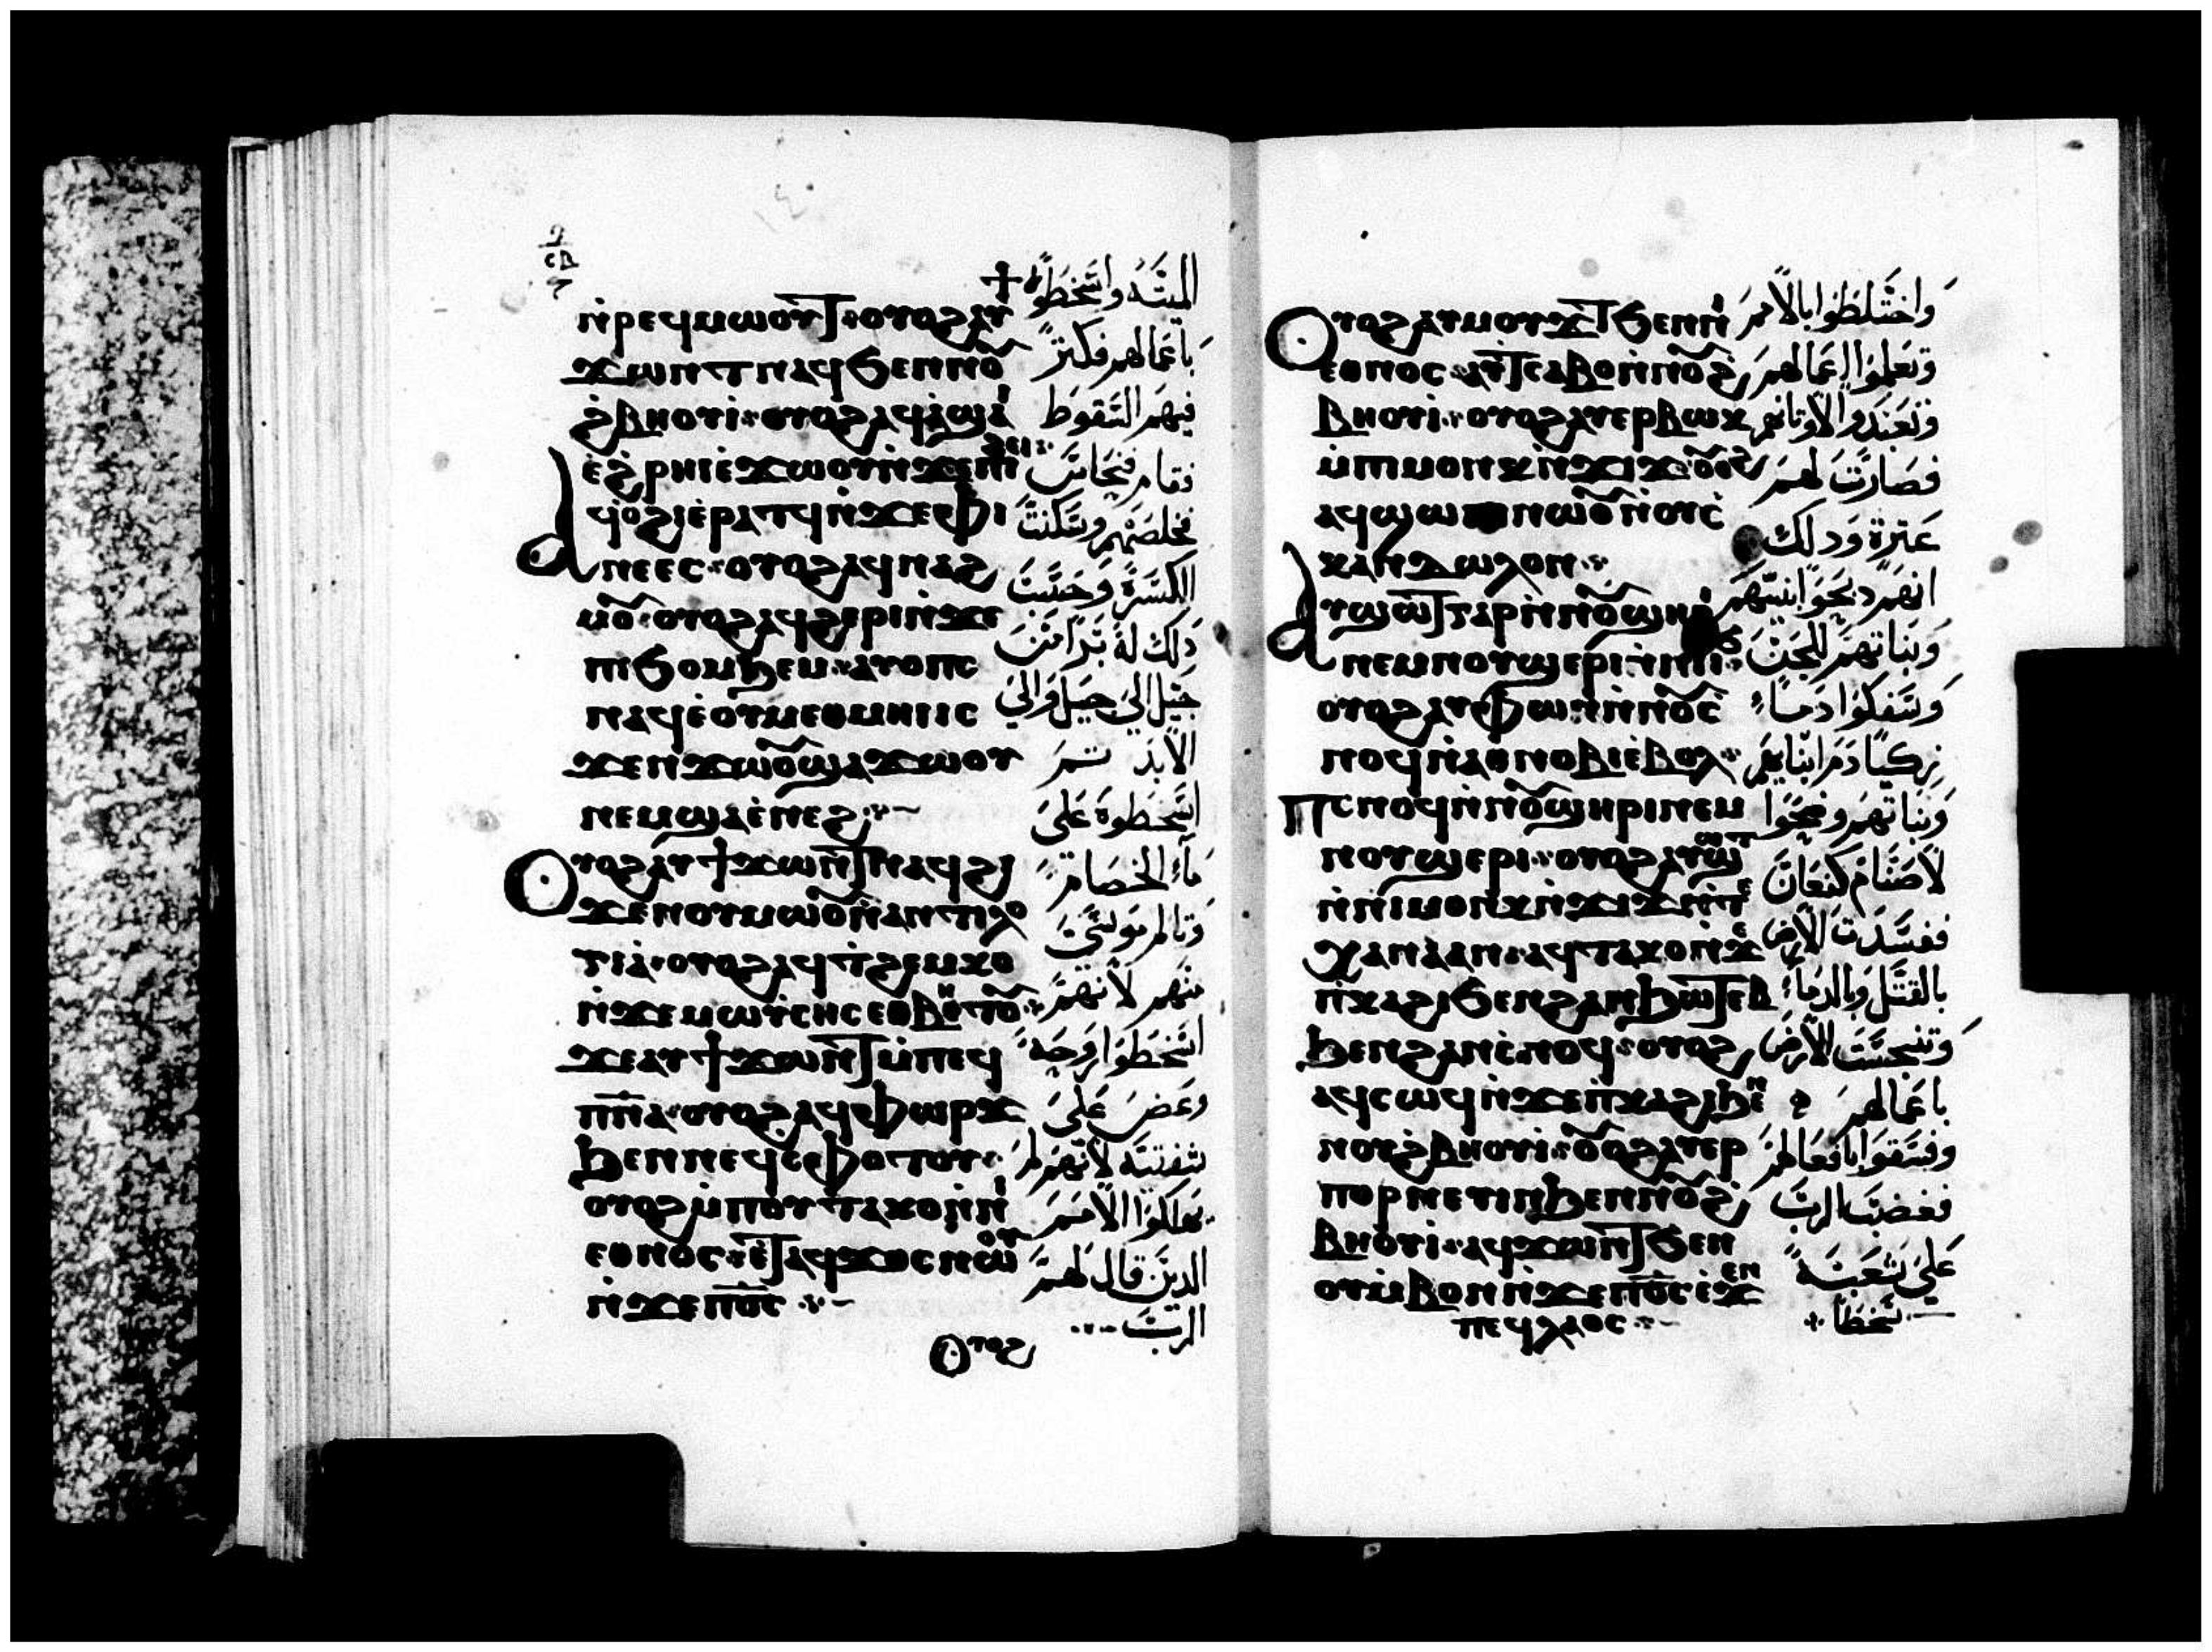 ⲛ̀ⲣⲉϥⲙⲱⲟⲩϯ ⲟⲩⲟϩ ⲁⲩ
ϫⲱⲛⲧ ⲛⲁϥ ϧⲉⲛ ⲛⲟⲩ
ϩ̀ⲃⲏⲟⲩⲓ ⲟⲩⲟϩ ⲁϥⲁ̀ϣⲁⲓ
ⲉ̀ϩ̀ⲣⲏⲓ ⲉ̀ϫⲱⲟⲩ ⲛ̀ϫⲉ ⲡⲓϩⲉⲓ
ⲁϥⲟ̀ϩⲓ ⲉ̀ⲣⲁⲧϥ ⲛ̀ϫⲉ ⲫⲓ
ⲛⲉⲉⲥ ⲟⲩⲟϩ ⲁϥⲛⲁϩ
ⲙⲟⲩ ⲟⲩⲟϩ ⲁϥϩⲉⲣⲓ ⲛ̀ϫⲉ
ⲡⲓϧⲟⲙϧⲉⲙ ⲁⲩⲟⲡⲥ
ⲛⲁϥ ⲉ̀ⲟⲩⲙⲉⲑⲙⲏⲓ ⲓⲥ
ϫⲉⲛ ϫⲱⲟⲩ ϣⲁ ϫⲱⲟⲩ
ⲛⲉⲙ ϣⲁ ⲉ̀ⲛⲉϩ
ⲟⲩⲟϩ ⲁⲩϯϫⲱⲛⲧ ⲛⲁϥ ϩⲓ
ϫⲉⲛ ⲟⲩⲙⲱⲟⲩ ⲛ̀ⲁⲛⲧⲓⲗⲟ
ⲅⲓⲁ ⲟⲩⲟϩ ⲁϥⲧ̀ϩⲉⲙⲕⲟ
ⲛ̀ϫⲉ ⲙⲱⲩ̀ⲥⲏⲥ ⲉⲑⲃⲏⲧⲟⲩ
ϫⲉ ⲁⲩϯϫⲱⲛⲧ ⲙ̀ⲡⲉϥ
ⲡ̅ⲛ̅ⲁ ⲟⲩⲟϩ ⲁϥⲫⲱⲣϫ
ϧⲉⲛ ⲛⲉϥⲥ̀ⲫⲟⲧⲟⲩ
ⲟⲩⲟϩ ⲙ̀ⲡⲟⲩⲧⲁⲕⲟ ⲛ̀ⲛⲓ
ⲉⲑⲛⲟⲥ ⲉ̀ⲧⲁϥϫⲟⲥ ⲛⲱⲟⲩ
ⲛ̀ϫⲉ ⲡ̅ⲟ̅ⲥ̅
ⲟⲩⲟϩ
الميتة واسخطوة
باعمالهم فكثر
فيهم السقوط
فخلصهم وسكنت
الكسرة وحسبت
جيل الي جيل والي
الابد
اسخطوة علي
ماء الخصامة
منهم لانهم
اسخطوا روحه
شفتيه لانهم لم
يهلكوا الامم
الذين قال لهم
الرب
ⲟⲩⲟϩ ⲁⲩⲙⲟⲩϫⲧ ϧⲉⲛ ⲛⲓ
ⲉⲑⲛⲟⲥ ⲁⲩⲧⲥⲁⲃⲟ ⲛ̀ⲛⲟⲩϩ
ⲃⲏⲟⲩⲓ ⲟⲩⲟϩ ⲁⲩⲉⲣⲃⲱⲕ
ⲙ̀ⲡⲓⲙⲟⲛⲕ ⲛ̀ϫⲓϫ ⲟⲩⲟϩ
ⲁϥϣⲱⲡⲓ ⲛⲱⲟⲩ ⲛ̀ⲟⲩⲥ̀
ⲕⲁⲛⲇⲁⲗⲟⲛ
ⲁⲩϣⲱⲧ ⲅⲁⲣ ⲛ̀ⲛⲟⲩϣⲏⲣⲓ
ⲛⲉⲙ ⲛⲟⲩϣⲉⲣⲓ
ⲟⲩⲟϩ ⲁⲩⲫⲱⲛ ⲛ̀ⲛⲟⲩⲥ̀
ⲛⲟϥ ⲛ̀ⲁⲑⲛⲟⲃⲓ ⲉ̀ⲃⲟⲗ
ⲡⲥⲛⲟϥ ⲛ̀ⲛⲟⲩϣⲏⲣⲓ ⲛⲉⲙ
ⲛⲟⲩϣⲉⲣⲓ ⲟⲩⲟϩ ⲁⲩϣⲱⲧ
ⲛ̀ⲛⲓⲙⲟⲛⲕ ⲛ̀ϫⲓϫ ⲛ̀ⲧⲉ
ⲭⲁⲛⲁⲁⲛ ⲁϥⲧⲁⲕⲟ ⲛ̀ϫⲉ
ⲡ̀ⲕⲁϩⲓ ϧⲉⲛ ϩⲁⲛϧⲱⲧⲉⲃ
ϧⲉⲛ ϩⲁⲛⲥ̀ⲛⲟϥ ⲟⲩⲟϩ
ⲁϥⲥⲱϥ ⲛ̀ϫⲉ ⲡ̀ⲕⲁϩⲓ ϧⲉⲛ
ⲛⲟⲩϩ̀ⲃⲏⲟⲩⲓ ⲟⲩⲟϩ ⲁⲩⲉⲣ
ⲡⲟⲣⲛⲉⲩⲓⲛ ϧⲉⲛ ⲛⲟⲩϩ
ⲃⲏⲟⲩⲓ ⲁϥϫⲱⲛⲧ ϧⲉⲛ
ⲟⲩⲙ̀ⲃⲟⲛ ⲛ̀ϫⲉ ⲡ̅ⲟ̅ⲥ̅ ⲉ̀ϫⲉⲛ
ⲡⲉϥⲗⲁⲟⲥ
واختلطوا بالامم
وتعلموا اعمالهم
وتعبدوا لاوثانهم
فصارت لهم
عثرة وذلك
انهم ذبحوا بنيهم
وبناتهم للجن
وسفكوا دما
زكيا دم ابنايهم
وبناتهم وذبحوا
لاصنام كنعان
ففسدت الارض
بالقتل وبالدماء
وتنجست الارض
باعمالهم
وفسقوا بافعالهم
فغضب الرب
علي شعبه
سخطا